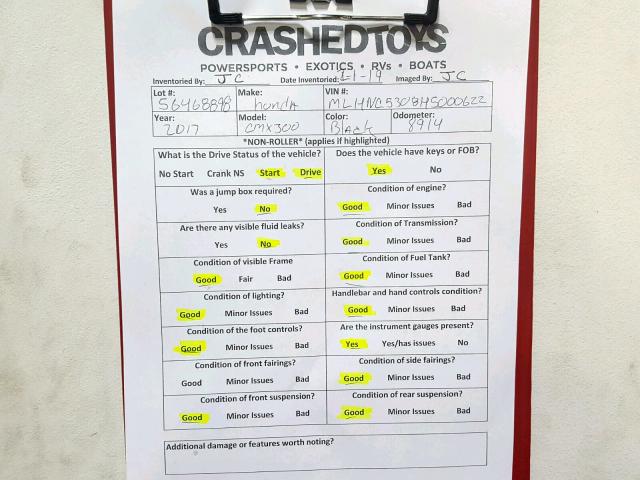 CRASHEDTOYS
POWERSPORTS • EXOTICS • RVs • BOATS
Inventoried By: JC Date Inventoried: 1-1-19 Imaged By: JC
Lot #: Make: VIN #:
56468898 honda MLHNC5308H5000622
Year: Model: Color: Odometer:
2017 CMX300 Black 8914
*NON-ROLLER* (applies if highlighted)
What is the Drive Status of the vehicle? Does the vehicle have keys or FOB?
No Start Crank NS Start Drive Yes No
Was a jump box required? Condition of engine?
Yes No Good Minor Issues Bad
Are there any visible fluid leaks? Condition of Transmission?
Yes No Good Minor Issues Bad
Condition of visible Frame Condition of Fuel Tank?
Good Fair Bad Good Minor Issues Bad
Condition of lighting? Handlebar and hand controls condition?
Good Minor Issues Bad Good Minor Issues Bad
Condition of the foot controls? Are the instrument gauges present?
Good Minor Issues Bad Yes Yes/has issues No
Condition of front fairings? Condition of side fairings?
Good Minor Issues Bad Good Minor Issues Bad
Condition of front suspension? Condition of rear suspension?
Good Minor Issues Bad Good Minor Issues Bad
Additional damage or features worth noting?